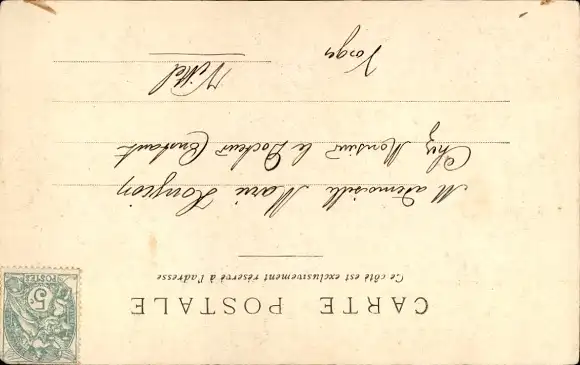 CARTE POSTALE
Ce côté est exclusivement réservé à l'adresse
Mademoiselle Marie
Chez Monsieur le Docteur Constant
Vittel
Vosges
5c
POSTES